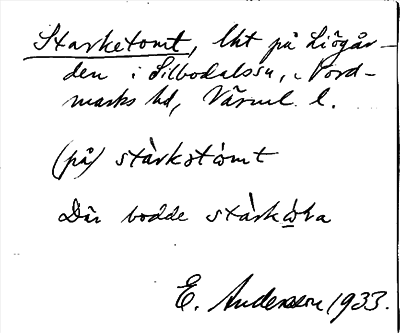 Starketomt, lht på Liögår-
den i Silbodalssn, Nord-
marks hd, Värml. l.
(på) stàrkstòmt
Där bodde stàrkò̲la
E. Andersson 1933.